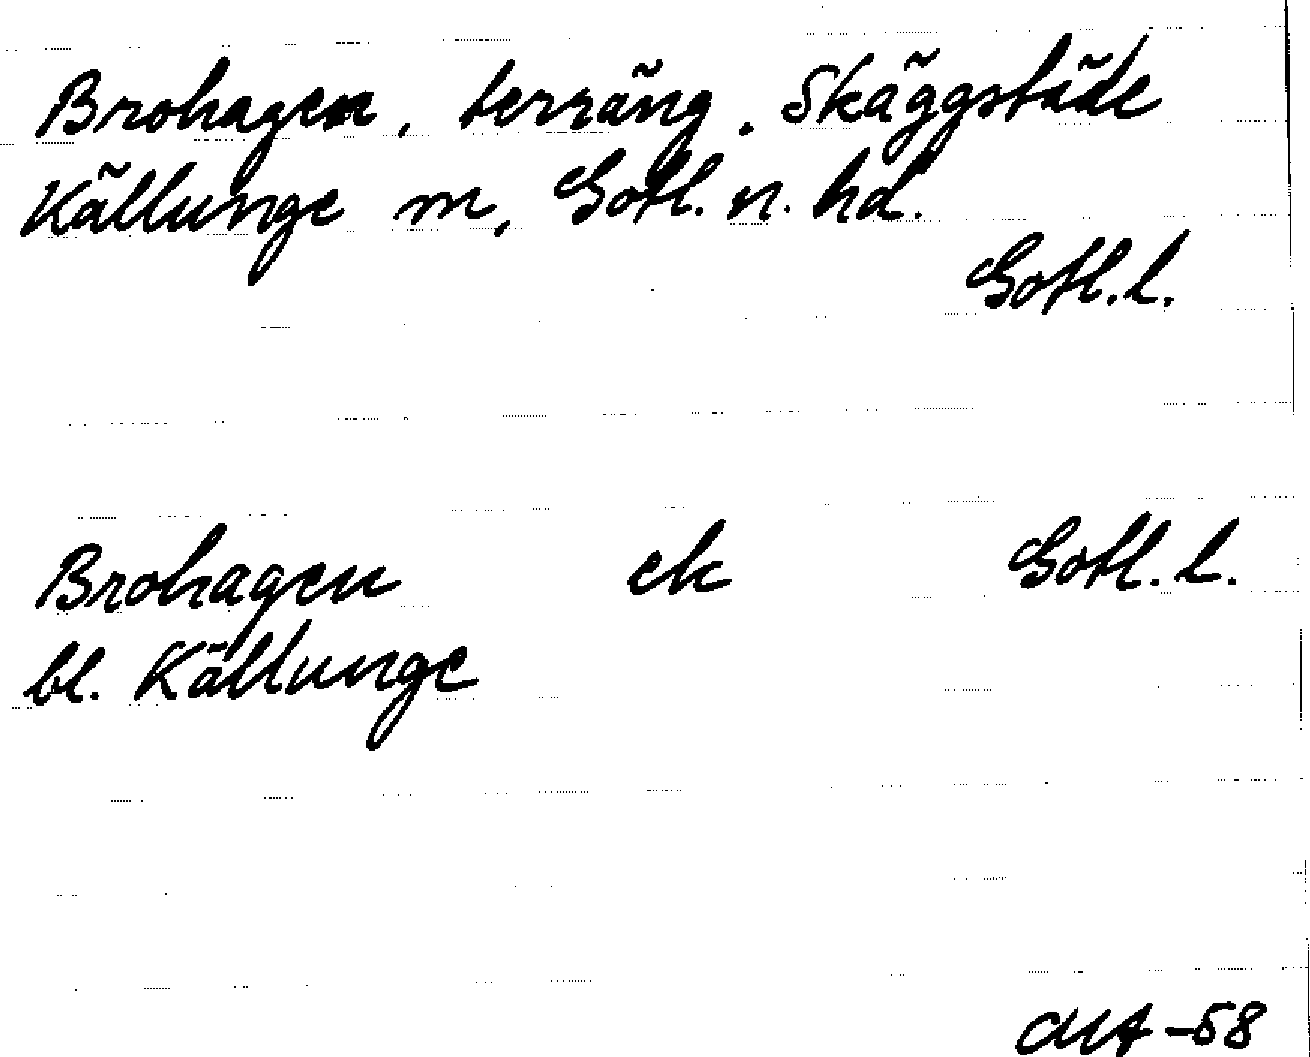 Brohagen, terräng. Skäggstäde
Källunge m, Gotl. n. hd.
Gotl.l.
Brohagen ek Gotl.l.
bl. Källunge
-58